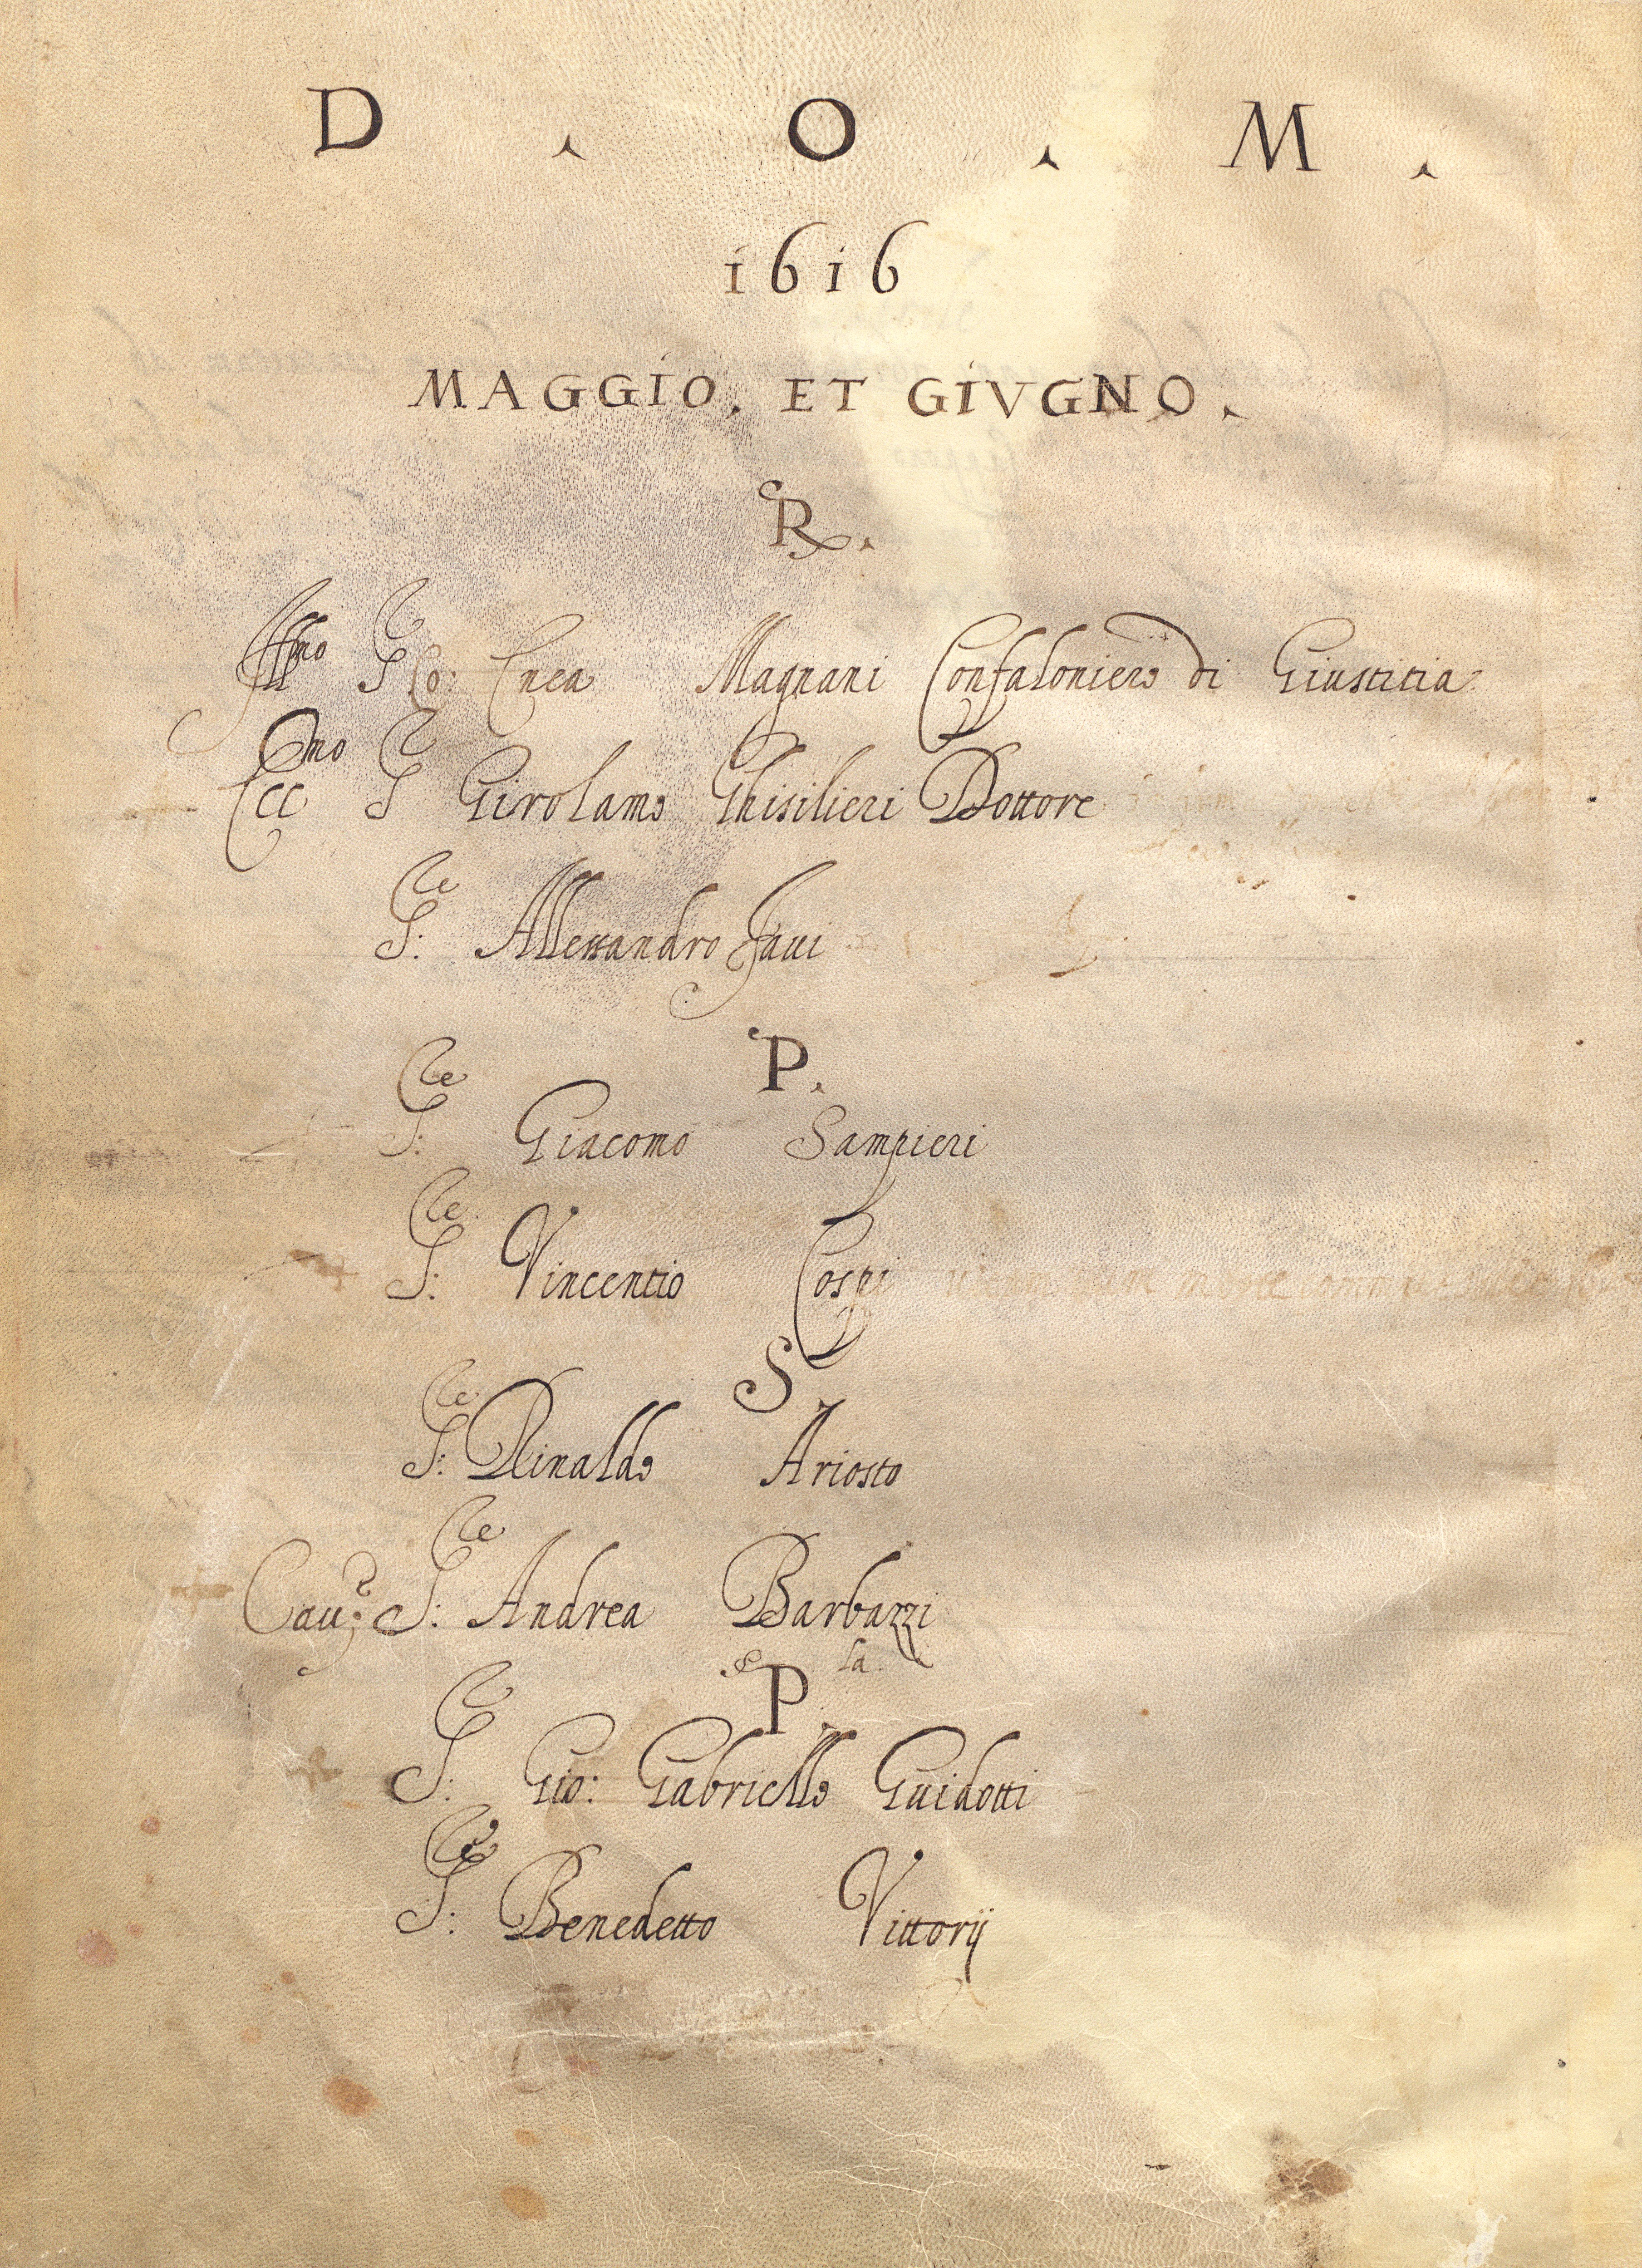 D . O . M .
1616
MAGGIO. ET GIVGNO.
R.
Illmo S Co: Enea Magnani Confaloniero di Giustitia
Eccmo S Girolamo Ghisilieri Dottore
S: Allessandro Faui
P.
S: Giacomo Sampieri
S: Vincentio Cospi
S
S: Rinaldo Ariosto
Cau: S: Andrea Barbazzi
P
S: Gio: Gabriello Guidotti
S: Benedetto Vittorij